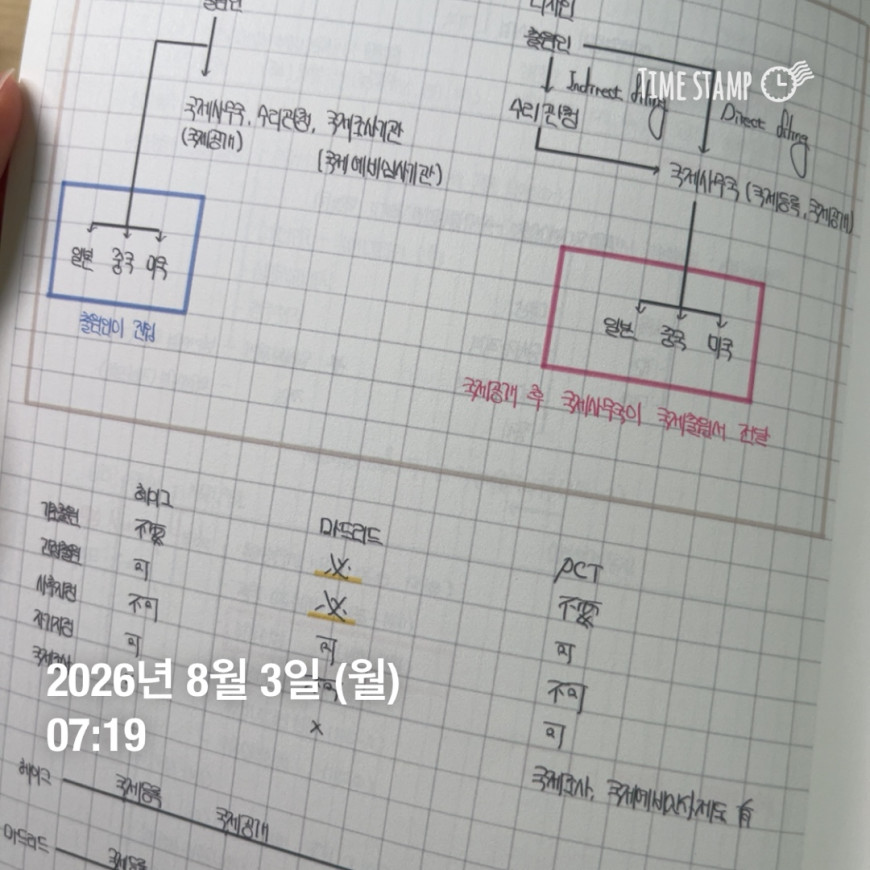 출원인
국제사무국, 수리관청, 국제조사기관
(국제공개)
(국제예비심사기관)
일본 중국 미국
출원인이 진입
디자인
출원인
Indirect filing
수리관청
Direct filing
국제사무국 (국제등록, 국제공개)
일본 중국 미국
국제공개 후 국제사무국이 국제출원서 전달
TIME STAMP
헤이그
마드리드
PCT
기초출원 不要 必 不要
可 必 可
사후지정 不可 可 不可
자기지정 可 可
국제조사 x 국제조사, 국제예비심사제도 有
2026년 8월 3일 (월)
07:19
헤이그 국제등록 국제공개
마드리드 국제등록